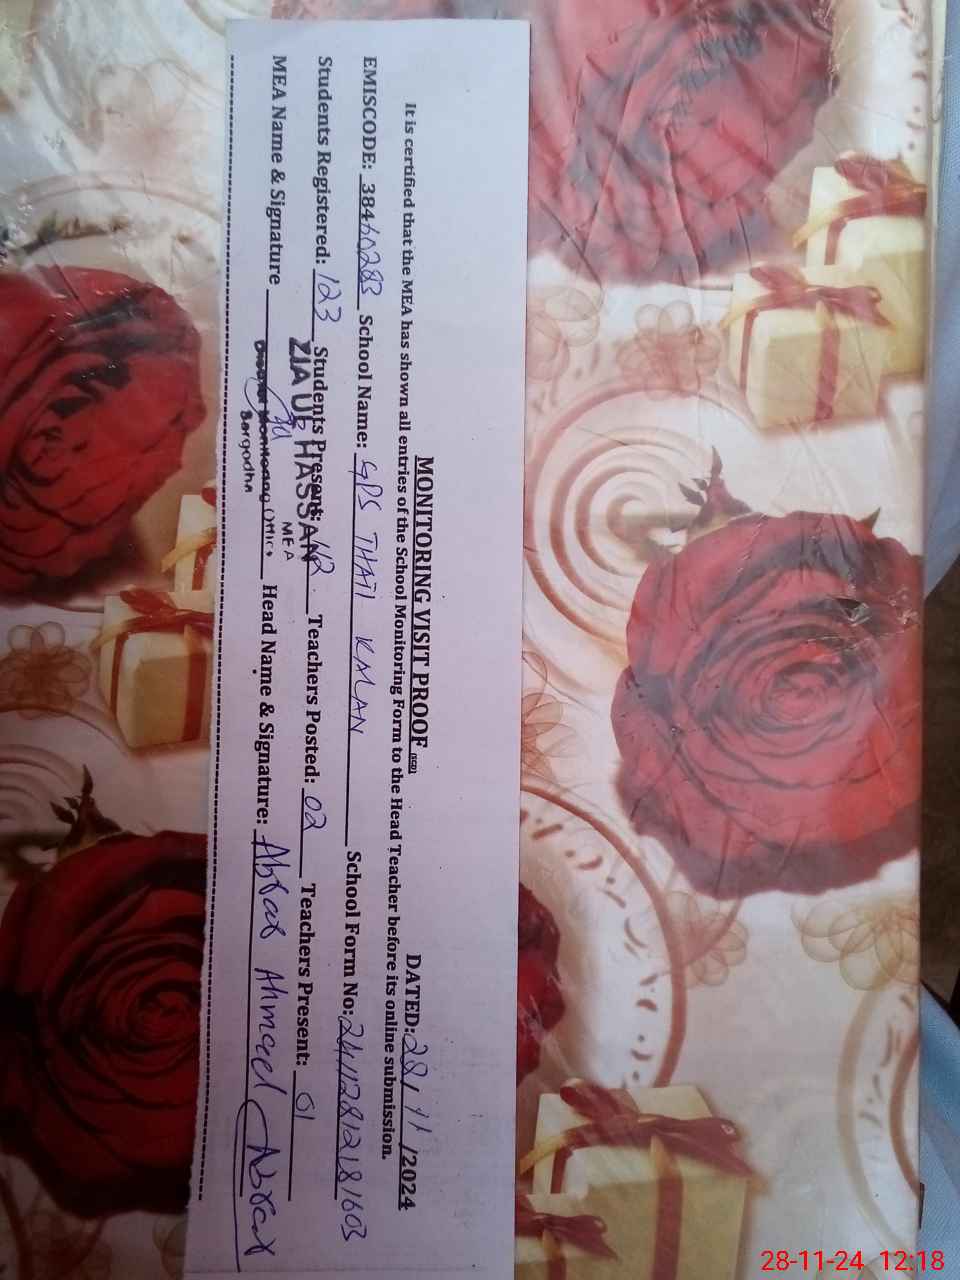 MONITORING VISIT PROOF (SCD) DATED: 28/11/2024
It is certified that the MEA has shown all entries of the School Monitoring Form to the Head Teacher before its online submission.
EMISCODE: 38460283 School Name: GPS THATI KALAN School Form No: 24112812181603
Students Registered: 123 Students Present: 112 Teachers Posted: 02 Teachers Present: 01
MEA Name & Signature Head Name & Signature: Abrar Ahmad Abrar
ZIA UL HASSAN
MEA
Monitoring Office
Sargodha
28-11-24 12:18